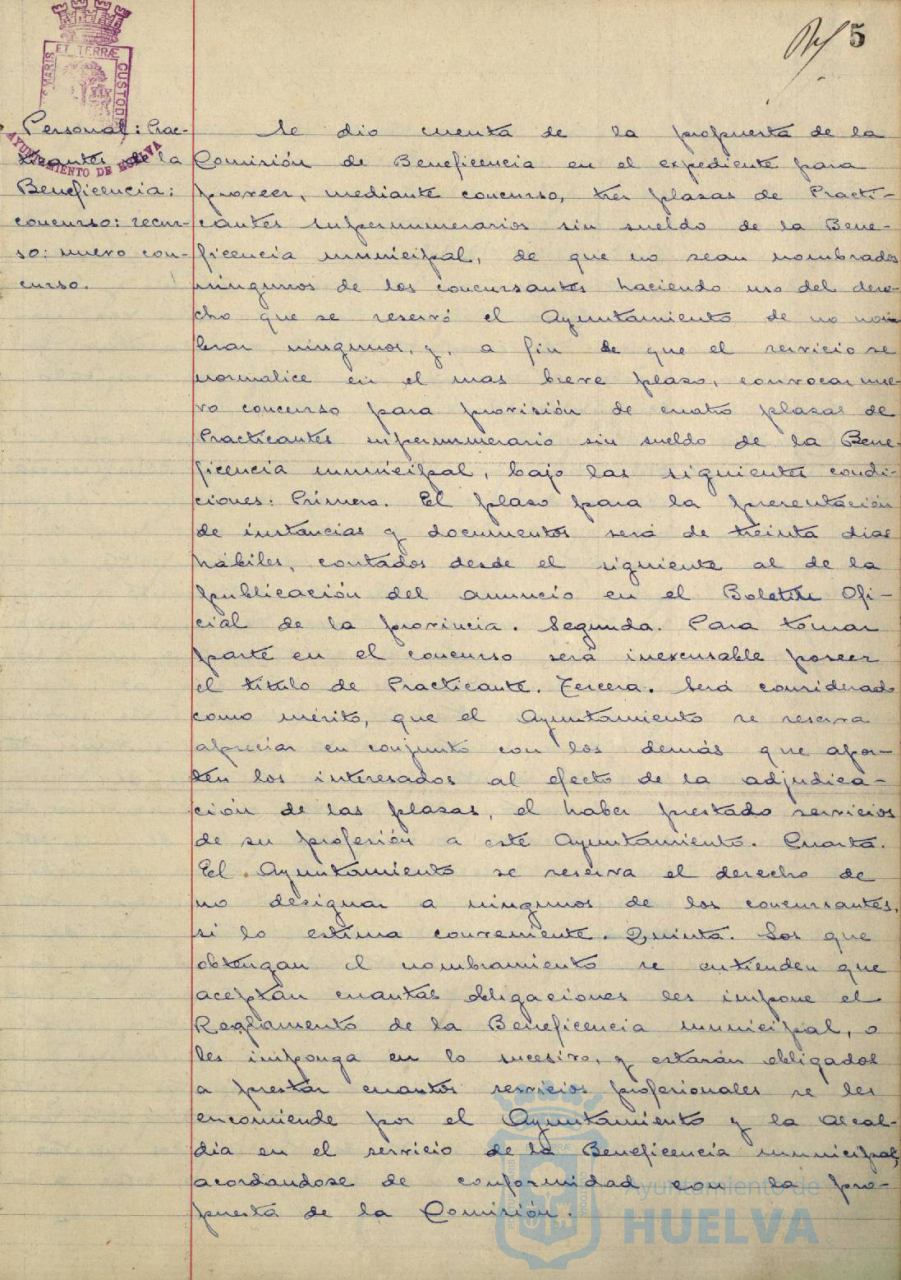 5
ET TERRÆ
MARIS
CUSTOD
AYUNTAMIENTO DE HUELVA
Personal: Prac-
ticantes de la
Beneficencia:
concurso: recur-
so: nuevo con-
curso.
Se dio cuenta de la propuesta de la
Comisión de Beneficencia en el expediente para
proveer, mediante concurso, tres plazas de Practi-
cantes supernumerarios sin sueldo de la Bene-
ficencia municipal, de que no sean nombrados
ningunos de los concursantes haciendo uso del dere-
cho que se reservó el Ayuntamiento de no nom
brar ningunos, y, a fin de que el servicio se
normalice en el mas breve plaso, convocar nue-
vo concurso para provisión de cuatro plazas de
Practicantes supernumerario sin sueldo de la Bene-
ficencia municipal, bajo las siguientes condi-
ciones: Primera. El plaso para la presentación
de instancias y documentos será de treinta dias
hábiles, contados desde el siguiente al de la
publicación del anuncio en el Boletín Ofi-
cial de la provincia. Segunda. Para tomar
parte en el concurso será inexcusable poseer
el título de Practicante. Tercera. Será considerado
como mérito, que el Ayuntamiento se reserva
apreciar en conjunto con los demás que apor-
ten los interesados al efecto de la adjudica-
ción de las plazas, el haber prestado servicios
de su profesión a este Ayuntamiento. Cuarta.
El Ayuntamiento se reserva el derecho de
no designar a ningunos de los concursantes,
si lo estima conveniente. Quinta. Los que
obtengan el nombramiento se entienden que
aceptan cuantas obligaciones les impone el
Reglamento de la Beneficencia municipal, o
les imponga en lo sucesivo, y estarán obligados
a prestar cuantos servicios profesionales se les
encomiende por el Ayuntamiento y la Alcal-
dia en el servicio de la Beneficencia municipal,
acordandose de conformidad con la pro-
puesta de la Comisión.
Ayuntamiento de
HUELVA